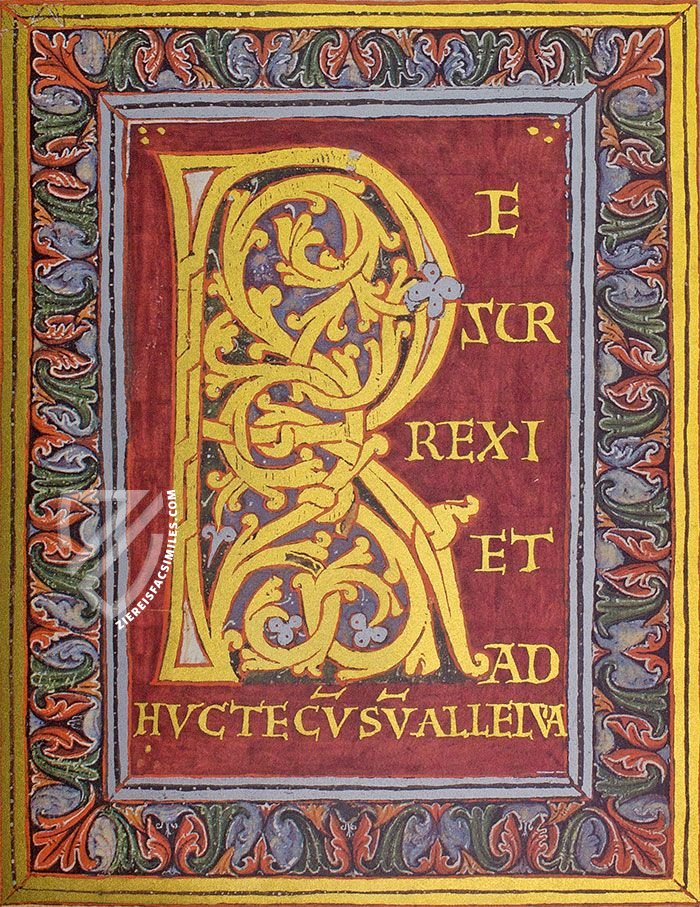 R
E
SUR
REXI
ET
AD
HVCTEC̄VSV̄ALLELVA
ZIEREISFACSIMILES.COM